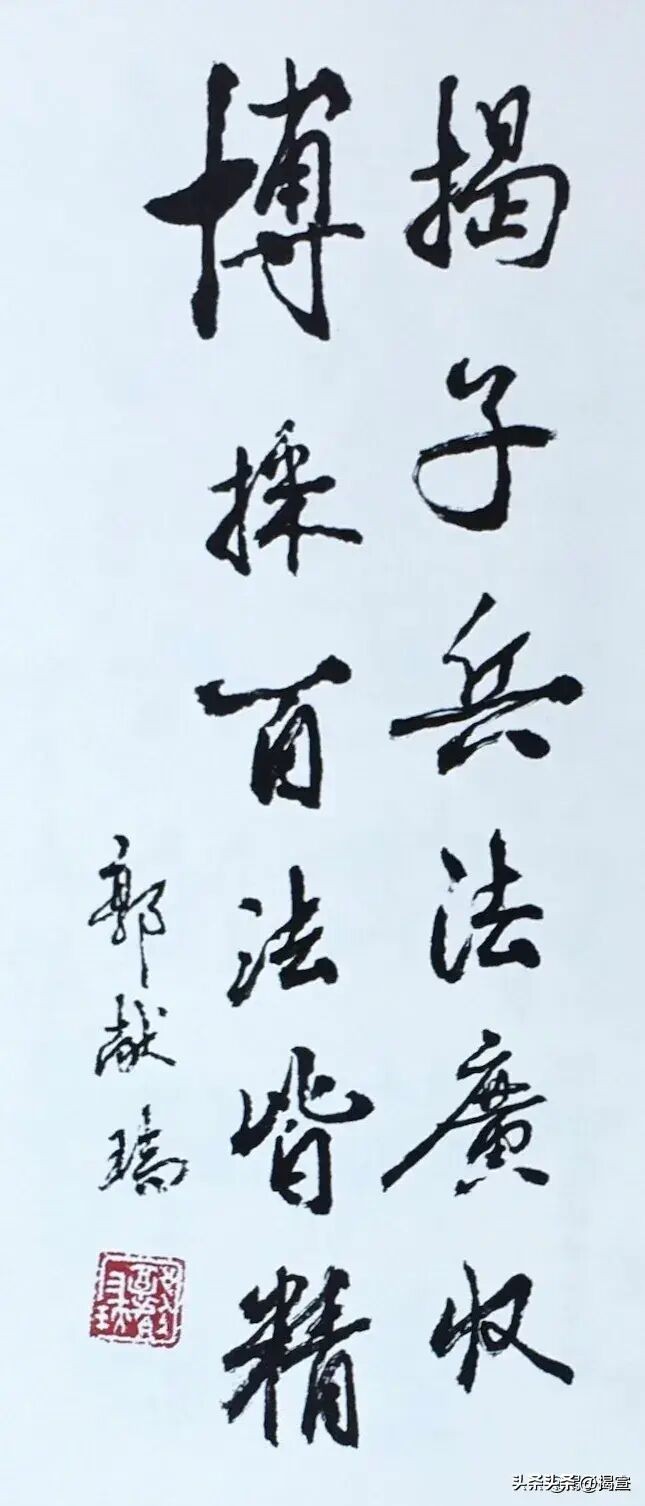 揭子兵法廣收
博採百法皆精
郭献瑞
头条头条@揭宣